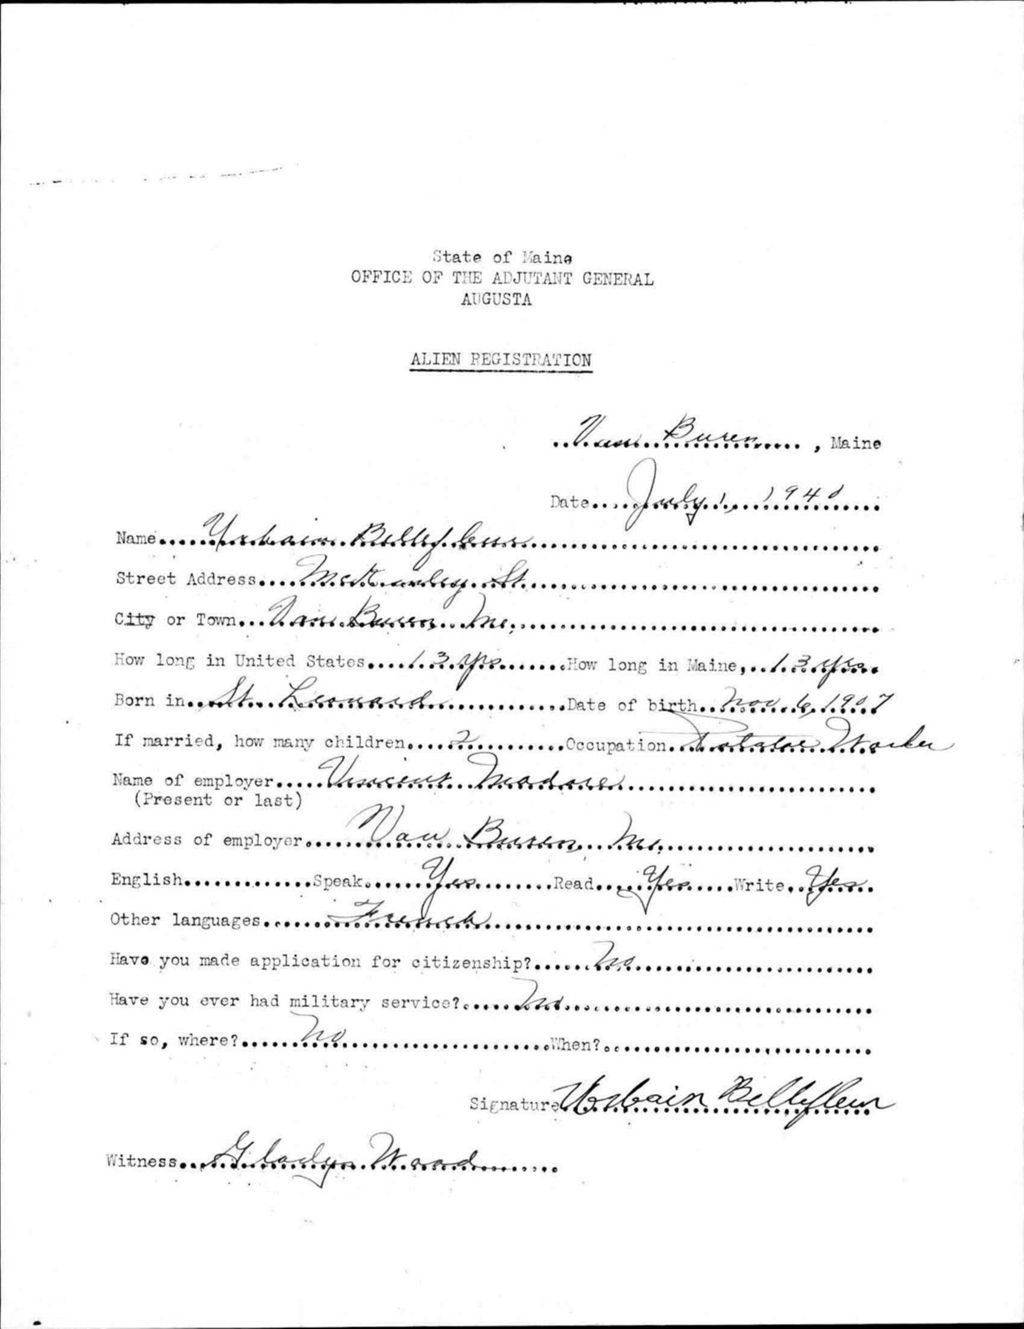 State of Maine
OFFICE OF THE ADJUTANT GENERAL
AUGUSTA
ALIEN REGISTRATION
Van Buren, Maine
Date July 1, 1940
Name Urbain Bellefleur
Street Address McKinley St.
City or Town Van Buren, Me.
How long in United States 13 yrs How long in Maine, 13 yrs.
Born in St. Leonard Date of birth Nov 6, 1907
If married, how many children 2 Occupation Potatoe Worker
Name of employer Vincent Madore
(Present or last)
Address of employer Van Buren, Me.
English Speak Yes Read Yes Write Yes
Other languages French
Have you made application for citizenship? No
Have you ever had military service? No
If so, where? No When?
Signature Urbain Bellefleur
Witness Gladys Wood